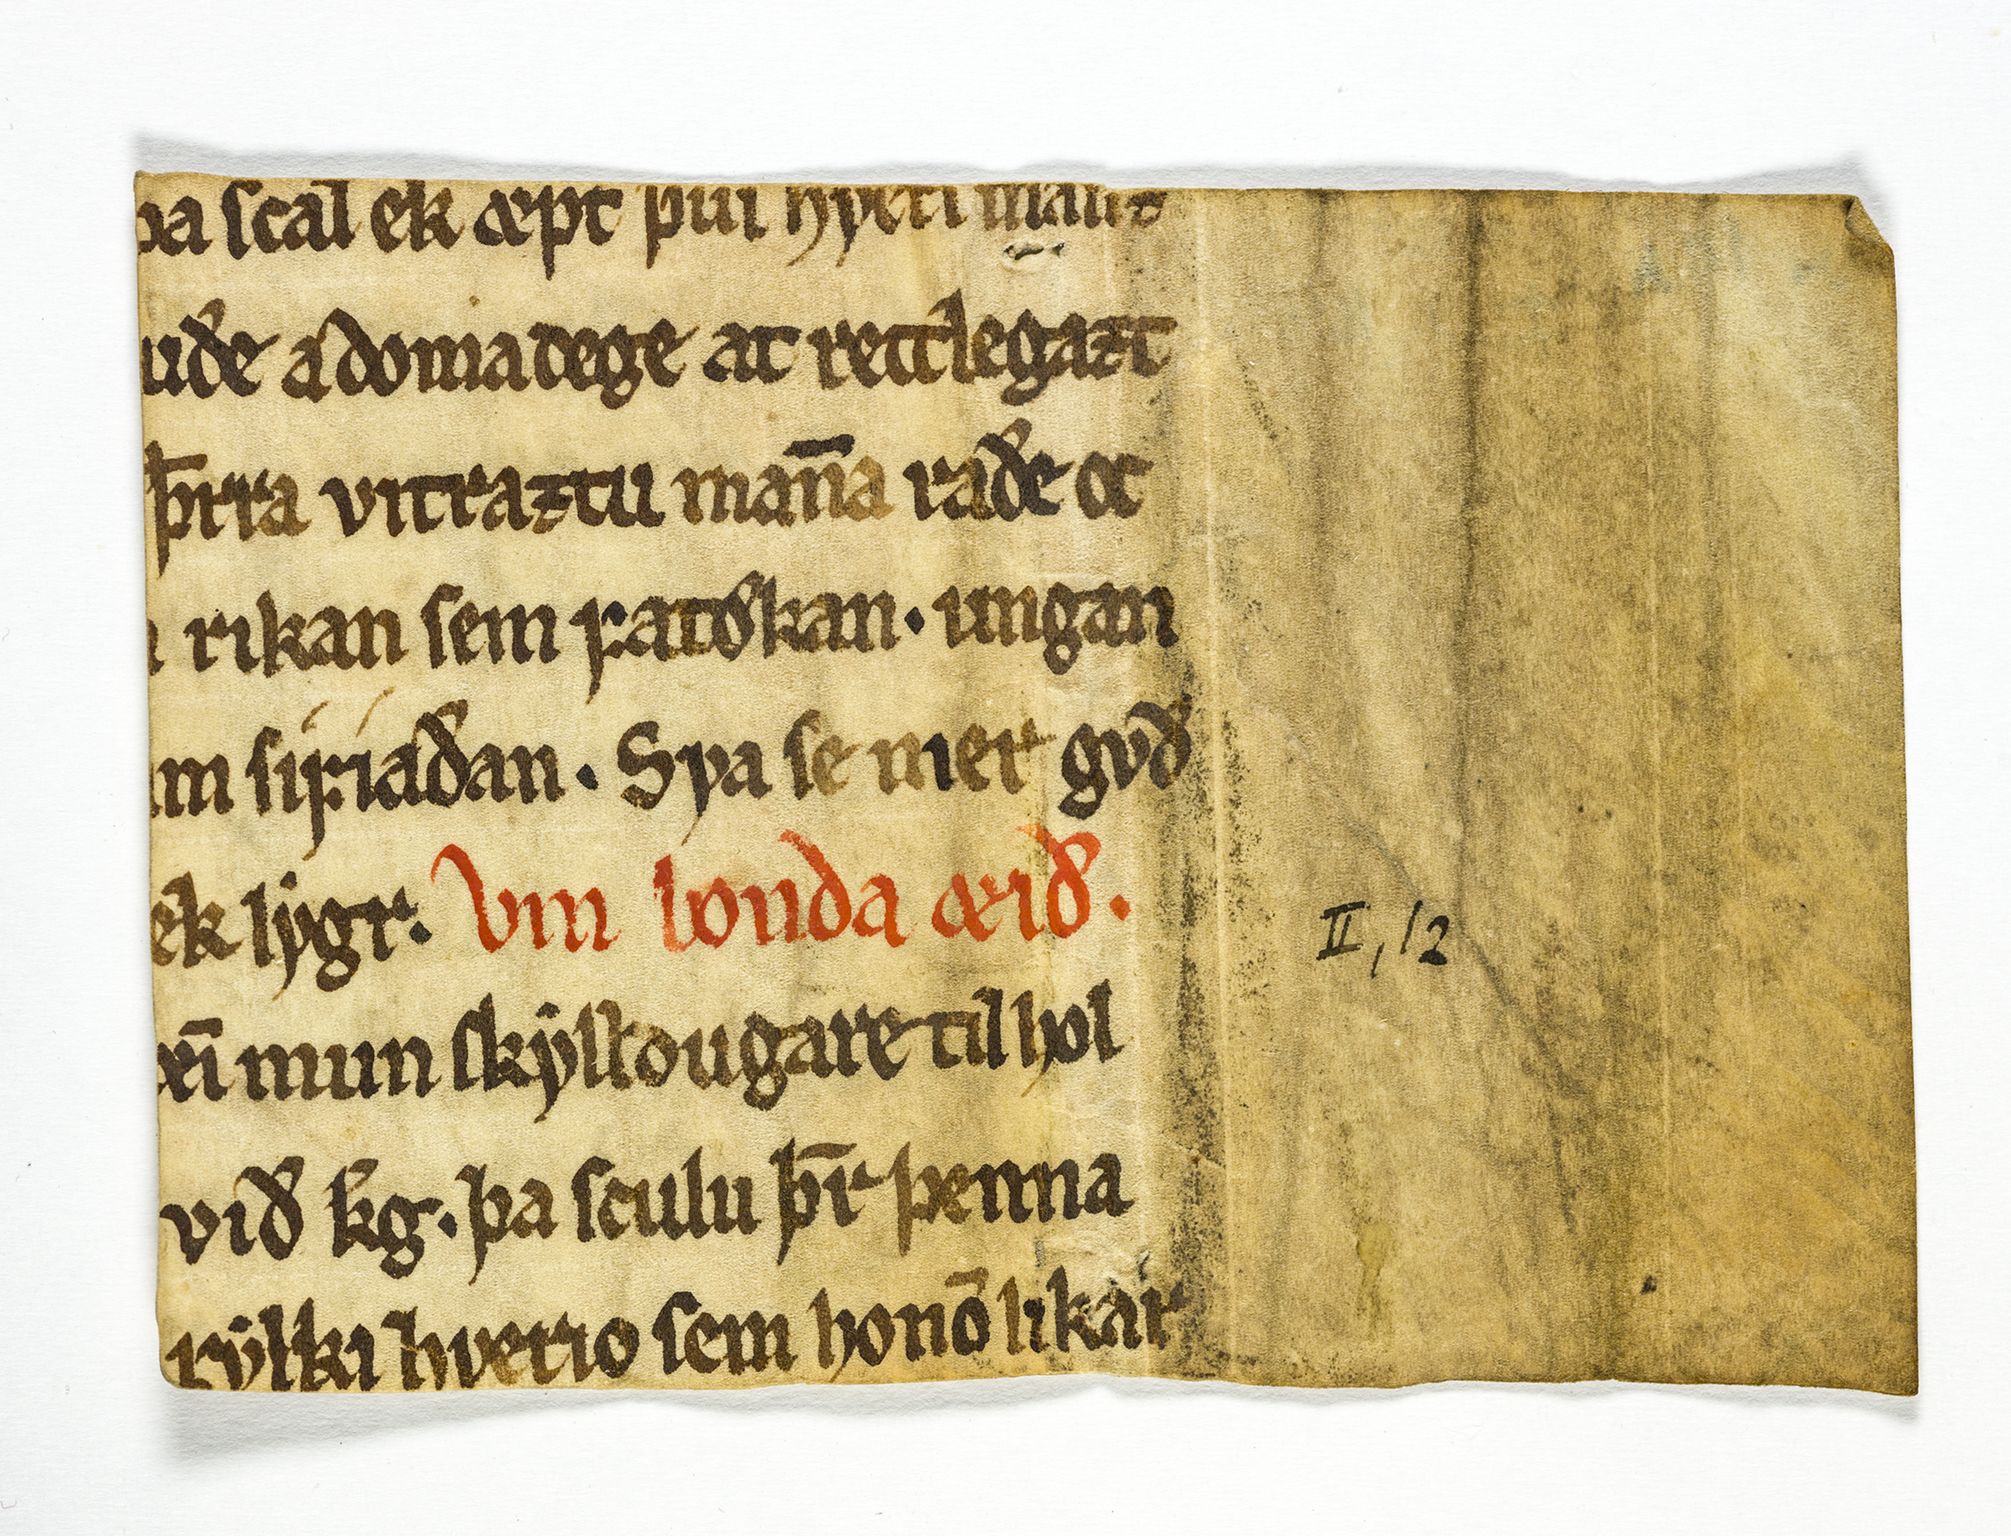 þa ſcal ek æpt þui hyecti manz
uðe a doma dege at rettlegazt
þ̄rra vitraztu man̄a raðe oc
rikan ſem fatǿkan · ungan
m ſifiaðan · Sva ſe mer gvð
ek lẏgr · Vm londa æið ·
æi mun ſkẏlldugare til hol
við k̄g · þa ſculu þ̄r þenna
fẏlki hverio ſem honō likar
II, 12